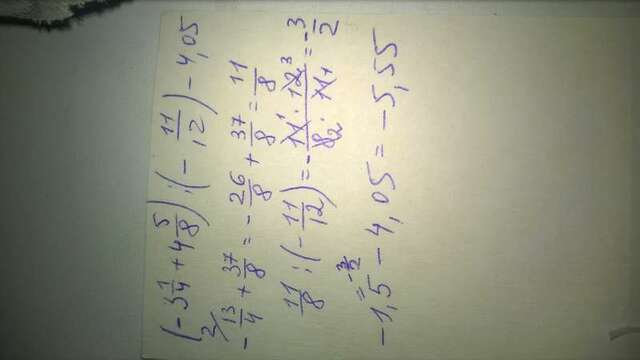 (-3 1/4 + 4 5/8) : (- 11/12) - 4,05
2/ - 13/4 + 37/8 = - 26/8 + 37/8 = 11/8
11/8 : (- 11/12) = - 11¹ · 12³ / 8₂ · 11₁ = - 3/2
= - 3/2
-1,5 - 4,05 = -5,55